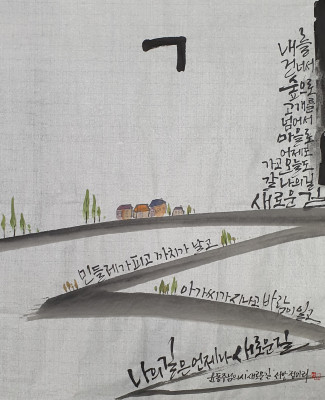 ㄱ
내를
건너서
숲으로
고개를
넘어서
마을로
어제도
가고 오늘도
갈 나의 길
새로운 길
민들레가 피고 까치가 날고
아가씨가 지나고 바람이 일고
나의 길은 언제나 새로운 길
윤동주님의 시 새로운길